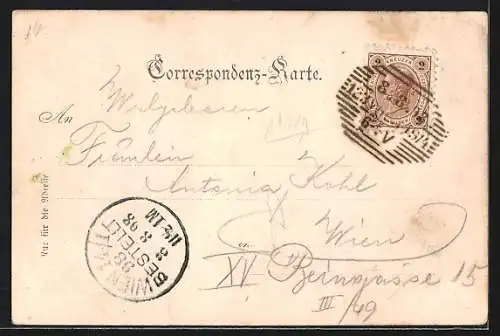 Correspondenz-Karte.
An
Wolgeboren
Fräulein
Antonia Kohl
in Wien
XV Beingasse 15
III/49
Nur für die Adresse
WIEN
BESTELLT
8 8 98
KREUZER
2